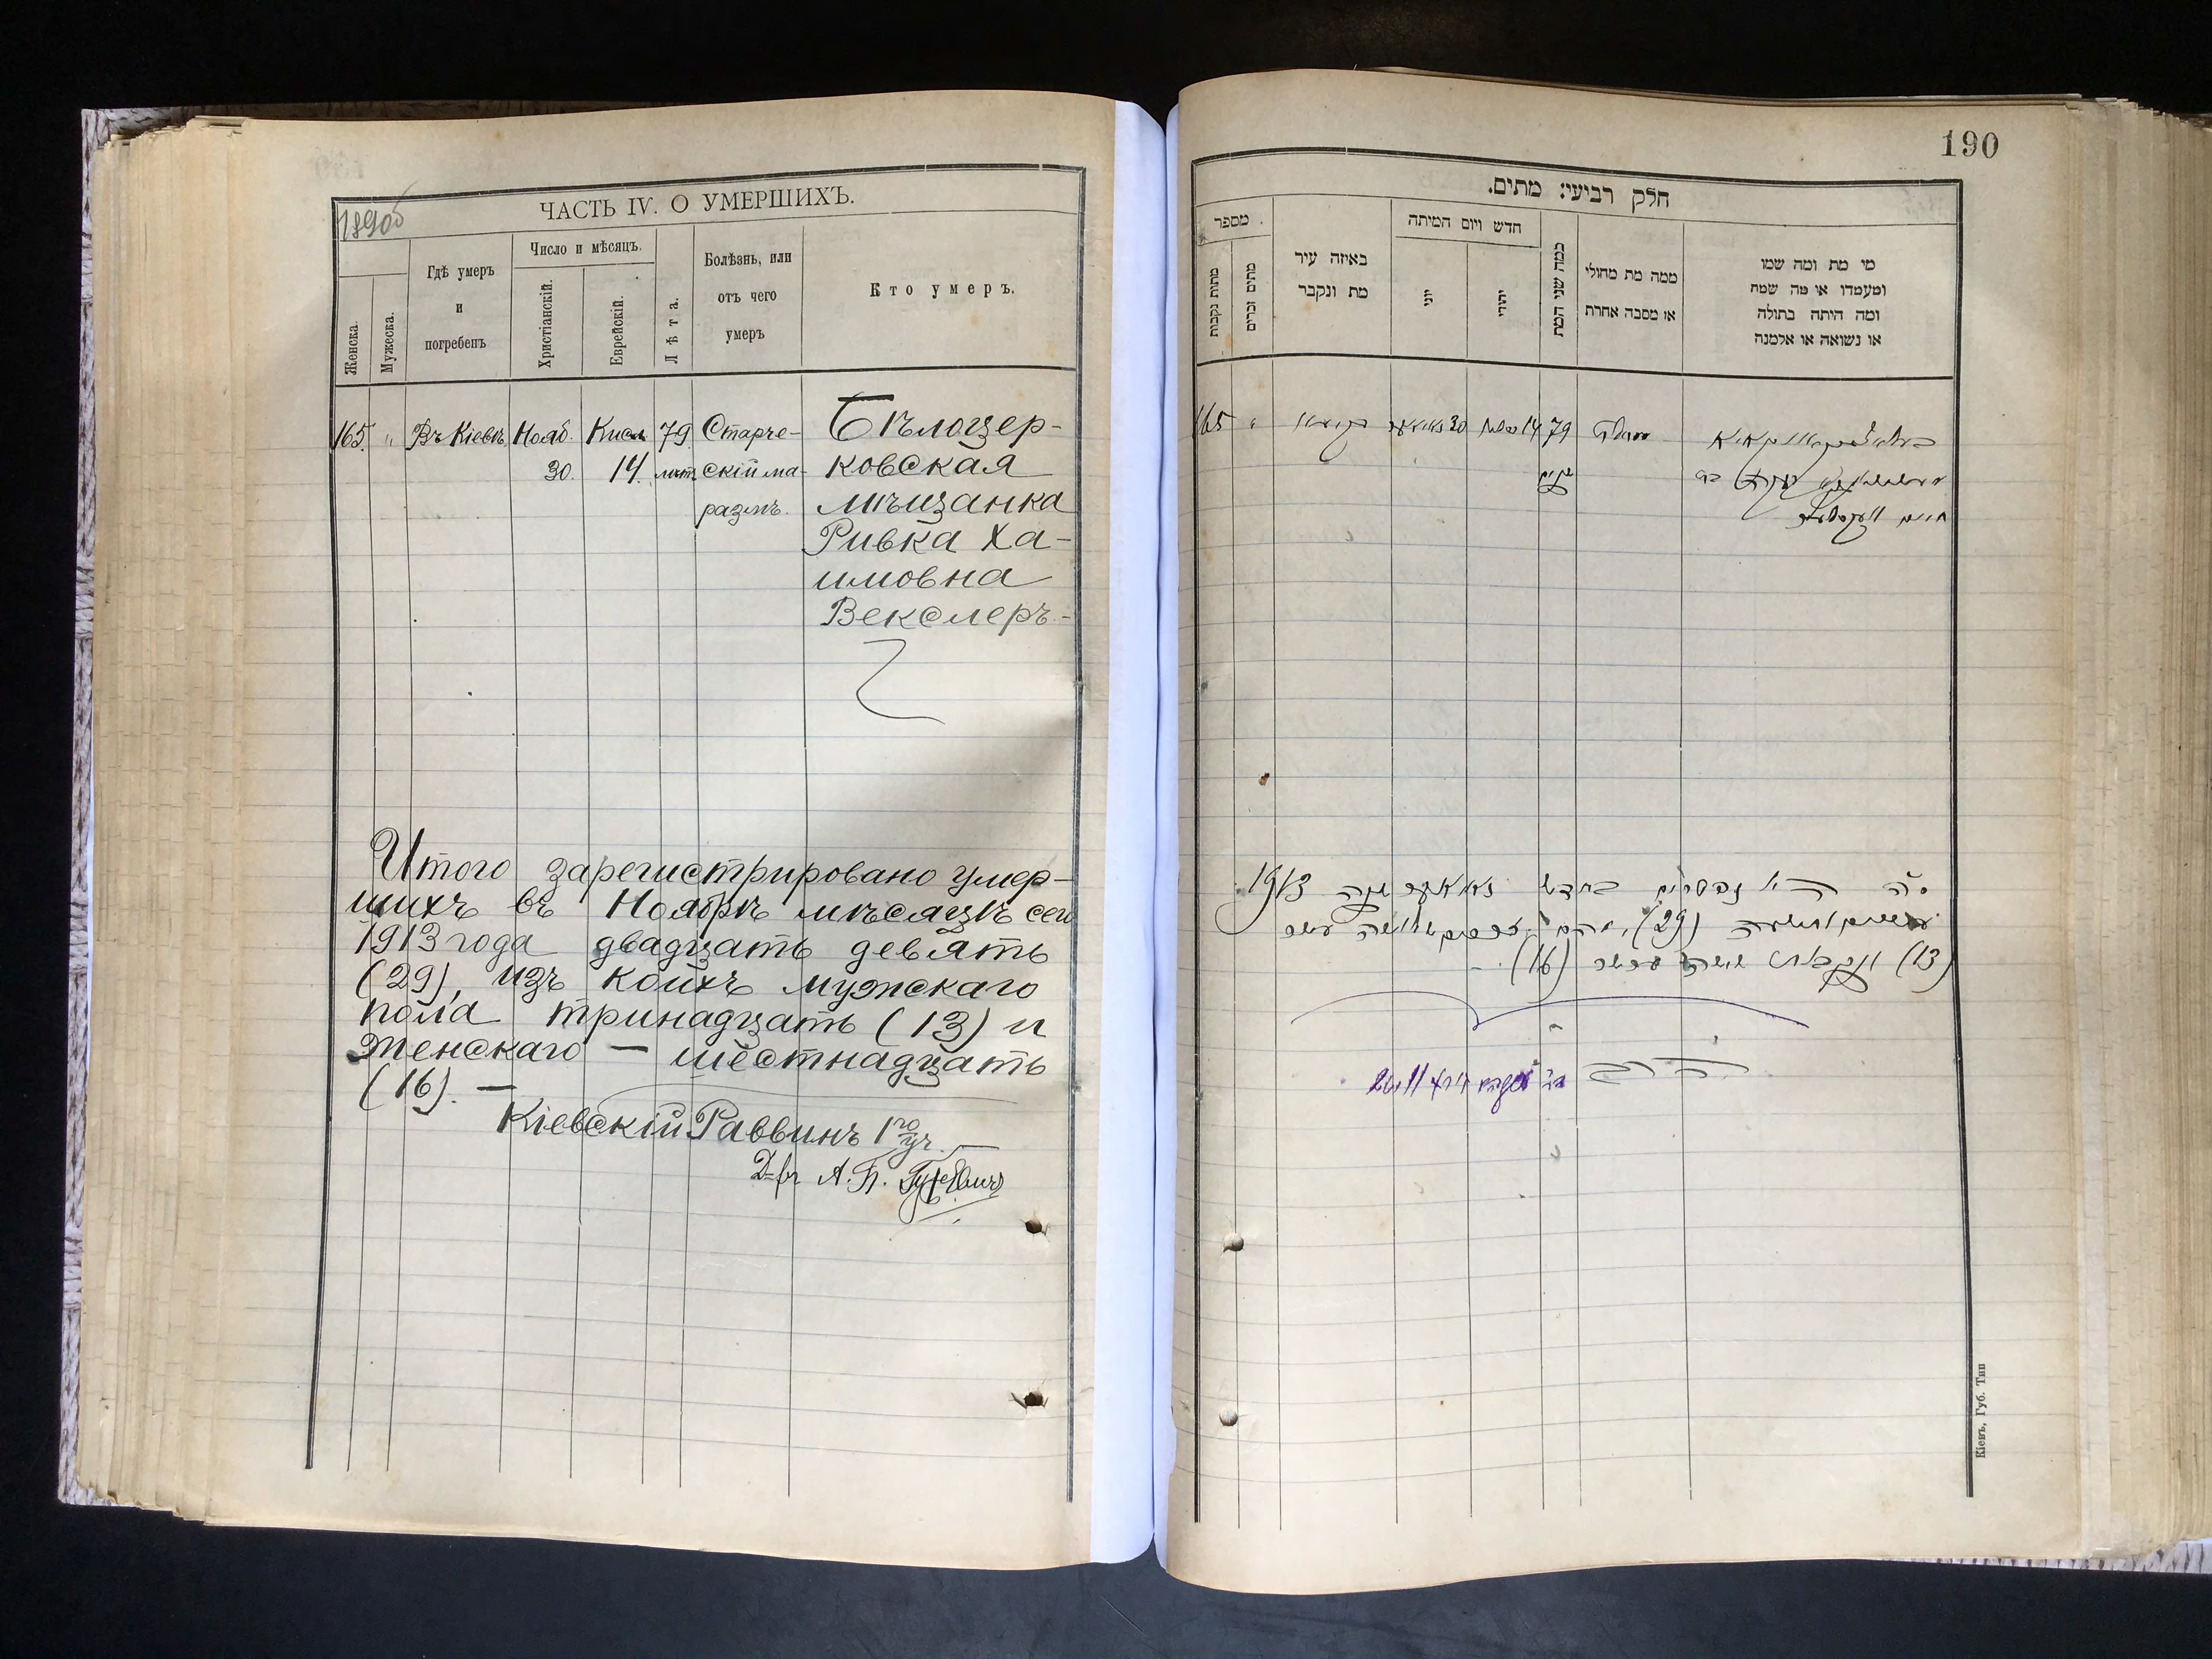 189об
ЧАСТЬ IV. О УМЕРШИХЪ.
Женска.
Мужеска.
Гдѣ умеръ
и
погребенъ
Число и мѣсяцъ.
Христіанскій.
Еврейскій.
Лѣта.
Болѣзнь, или
отъ чего
умеръ
Кто умеръ.
165. " Въ Кіевѣ Нояб. Кисл 79 Старче- Бѣлоцер-
30. 14. лѣт скій ма- ковская
размъ. мѣщанка
Ривка Ха-
имовна
Векслеръ.-
Итого зарегистрировано умер-
шихъ въ Ноябрѣ мѣсяцѣ сего
1913 года двадцать девять
(29), изъ коихъ мужскаго
пола тринадцать (13) и
женскаго — шестнадцать
(16). —
Кіевскій Раввинъ 1го уч.
Д-ръ А. Б. Гуревичъ
190
חלק רביעי: מתים.
מספר
מתות נקבות
מתים זכרים
באיזה עיר
מת ונקבר
חדש ויום המיתה
יוני
יהודי
כמה שני המת
ממה מת מחולי
או מסבה אחרת
מי מת ומה שמו
ומעמדו או מה שמת
ומה היתה בתולה
או נשואה או אלמנה
165 " 30 14 79
שנים
חיים
ס"ה נפטרים בחדש שנה 1913
(29),
(13) ונקבות ששה עשר (16). –
Кіевъ, Губ. Тип